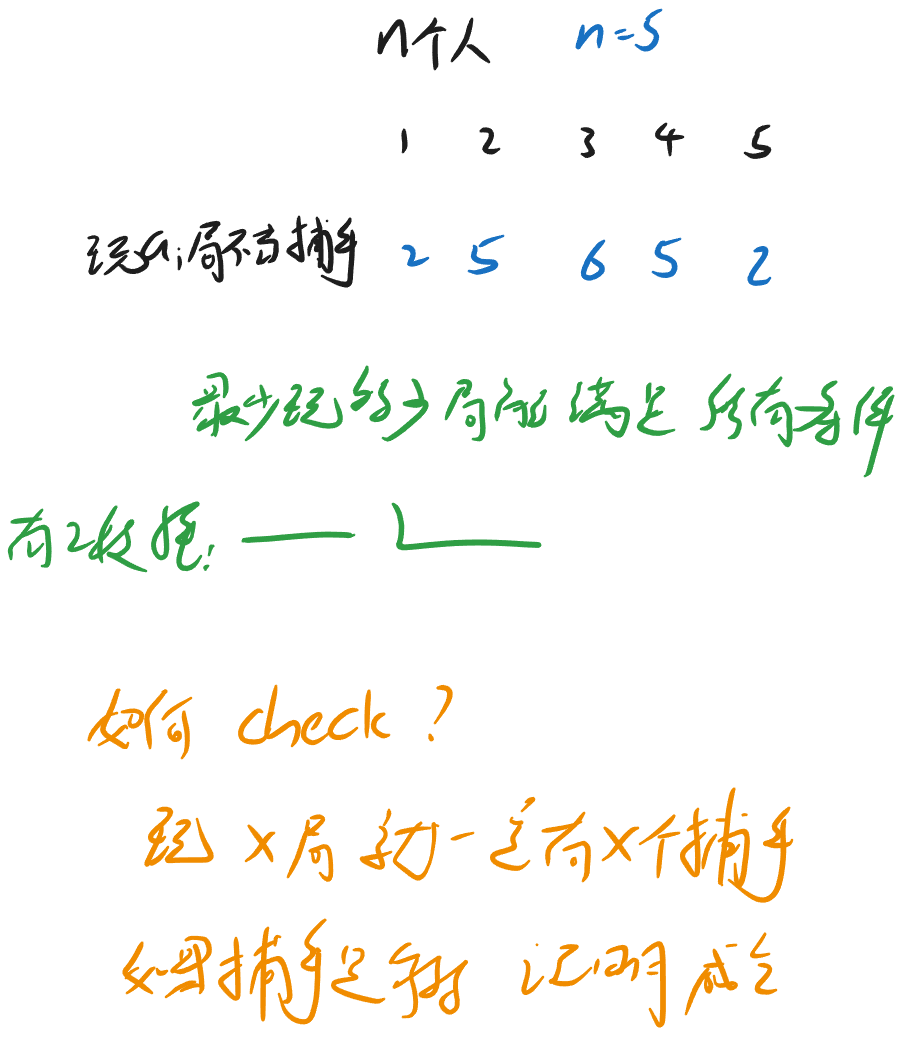 n个人 n=5
1 2 3 4 5
玩ai局不当捕手 2 5 6 5 2
最少玩多少局能满足所有条件
有2枚
如何 check ?
玩 x局 一定有x个捕手
如果捕手足够 证明成立